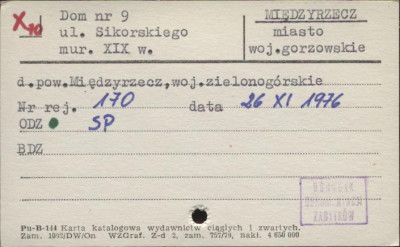 X 40
Dom nr 9
ul. Sikorskiego
mur. XIX w.
MIĘDZYRZECZ
miasto
woj.gorzowskie
d.pow.Międzyrzecz,woj.zielonogórskie
Nr rej. 170 data 26 XI 1976
ODZ SP
BDZ
Pu-B-144 Karta katalogowa wydawnictw ciągłych i zwartych.
WZGraf. Z-d 2, zam. 757/79, nakł. 4 650 000